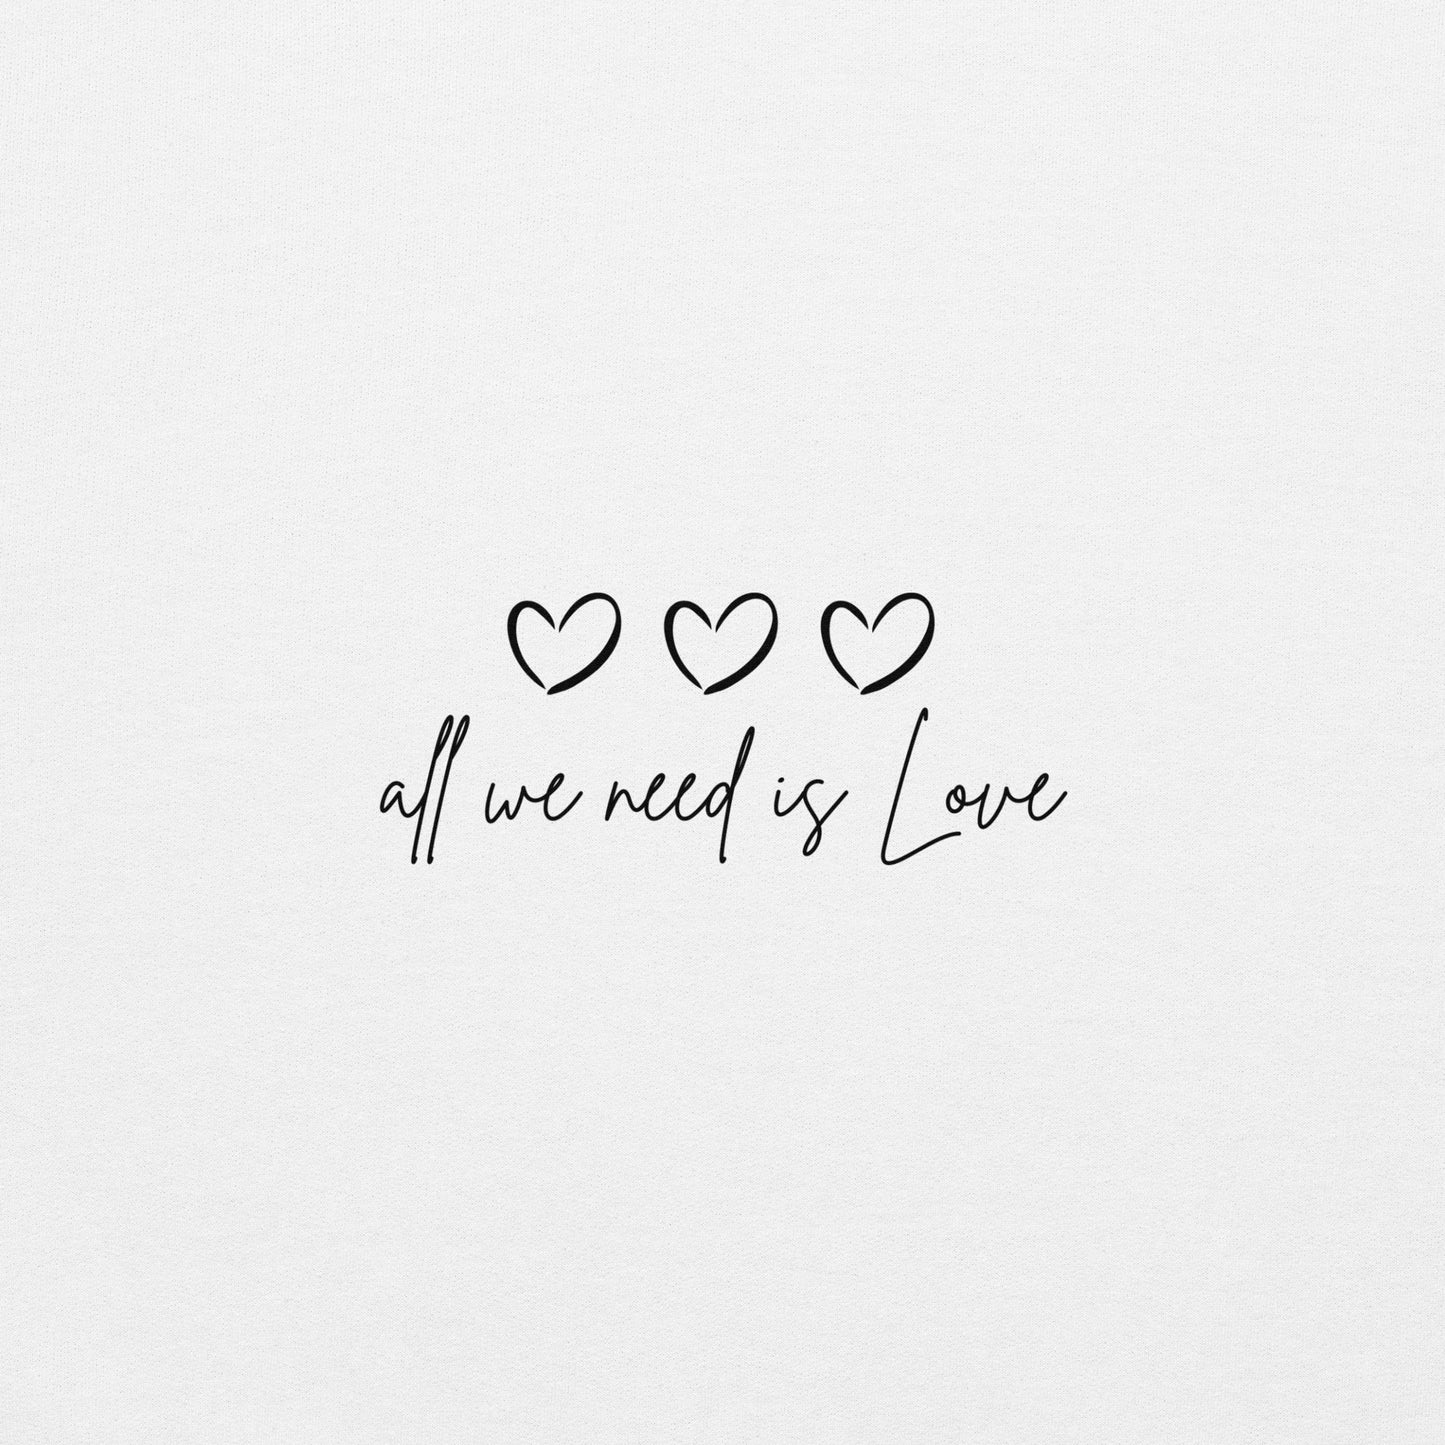 all we need is Love